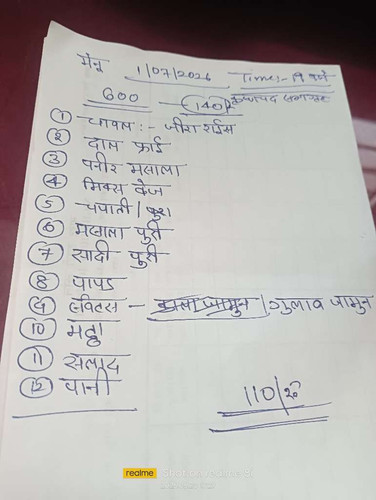 मेनू 1/07/2026 Time:- 19
600 — 140/-
① चावल :- जीरा राईस
② दाल फ्राई
③ पनीर मसाला
④ मिक्स वेज
⑤ चपाती /
⑥ मसाला पुरी
⑦ सादी पुरी
⑧ पापड
⑨ स्विटस - काला जामुन / गुलाब जामुन
⑩ मठ्ठा
⑪ सलाद
⑫ पानी
110/रु
realme